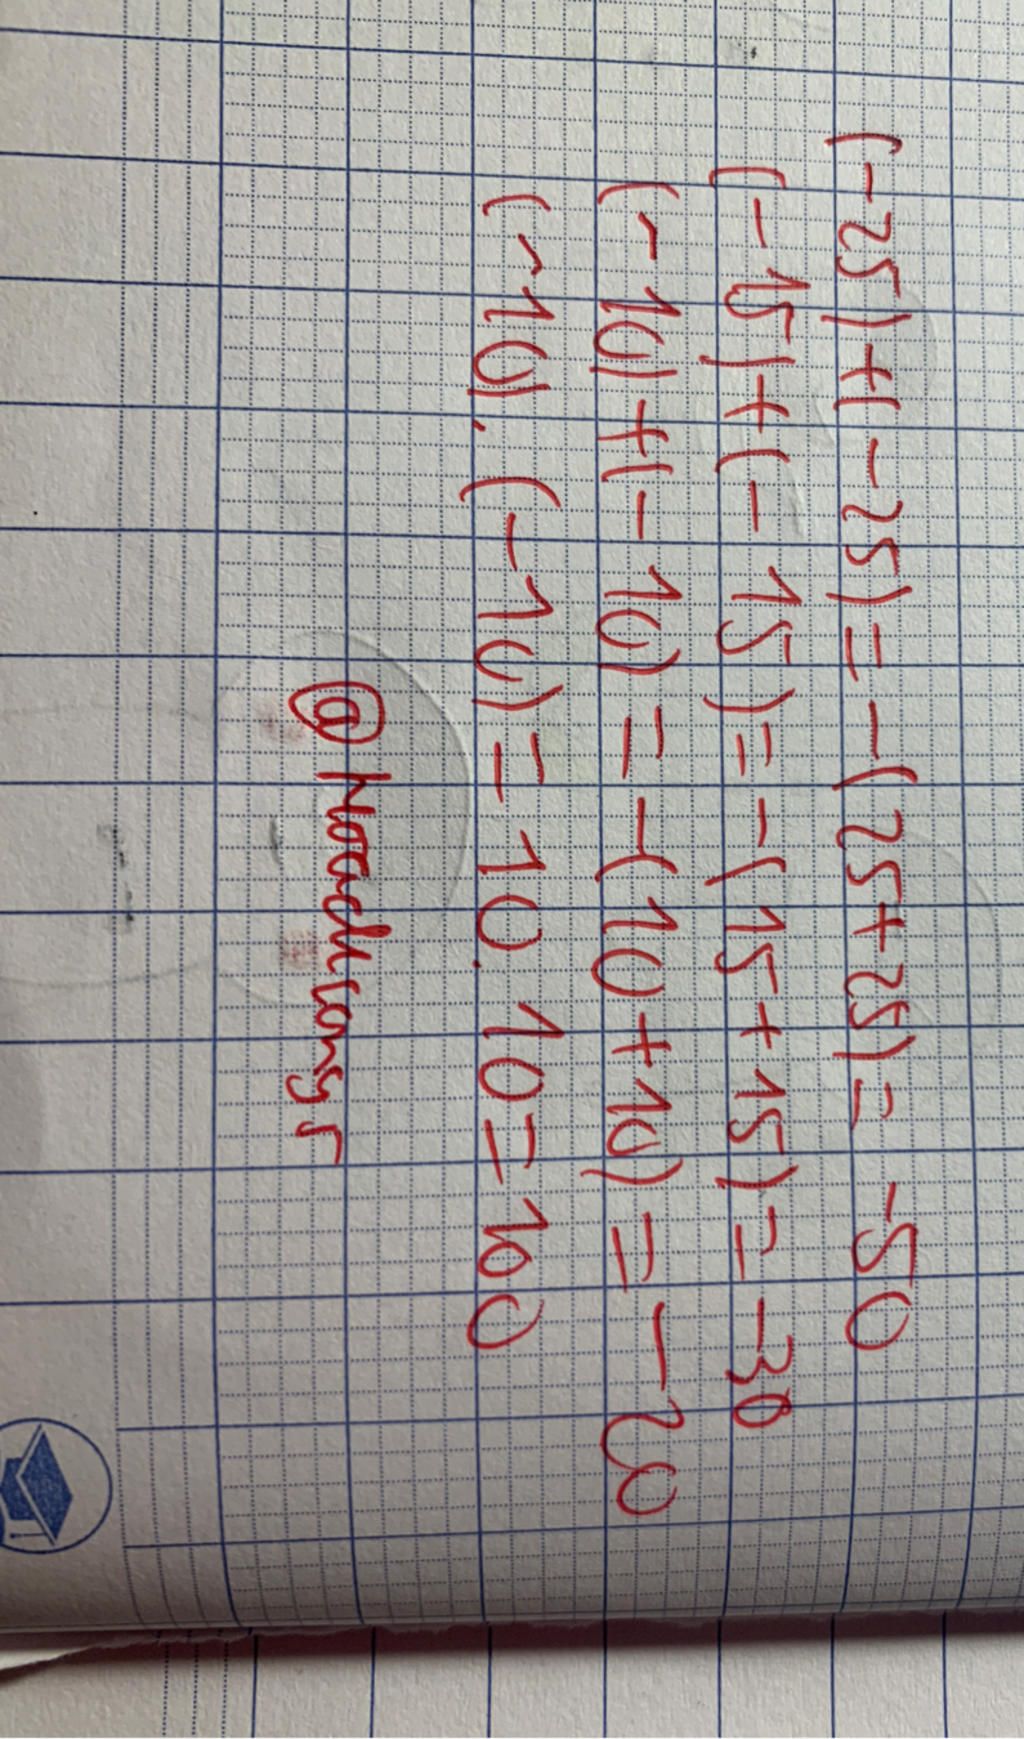 (-25)+(-25)=-(25+25)= -50
(-15)+(-15)=-(15+15)=-30
(-10)+(-10)=-(10+10)=-20
(-10).(-10)=10.10=100